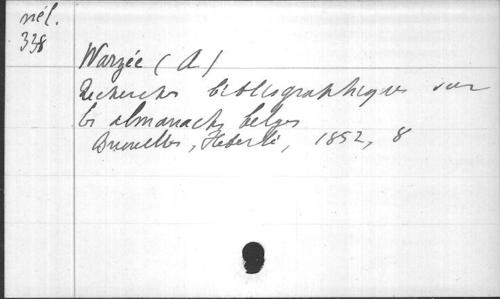 mél.
338
Warzée (A)
Recherches bibliographiques sur
les almanachs belges
Bruxelles, Heberlé, 1852, 8